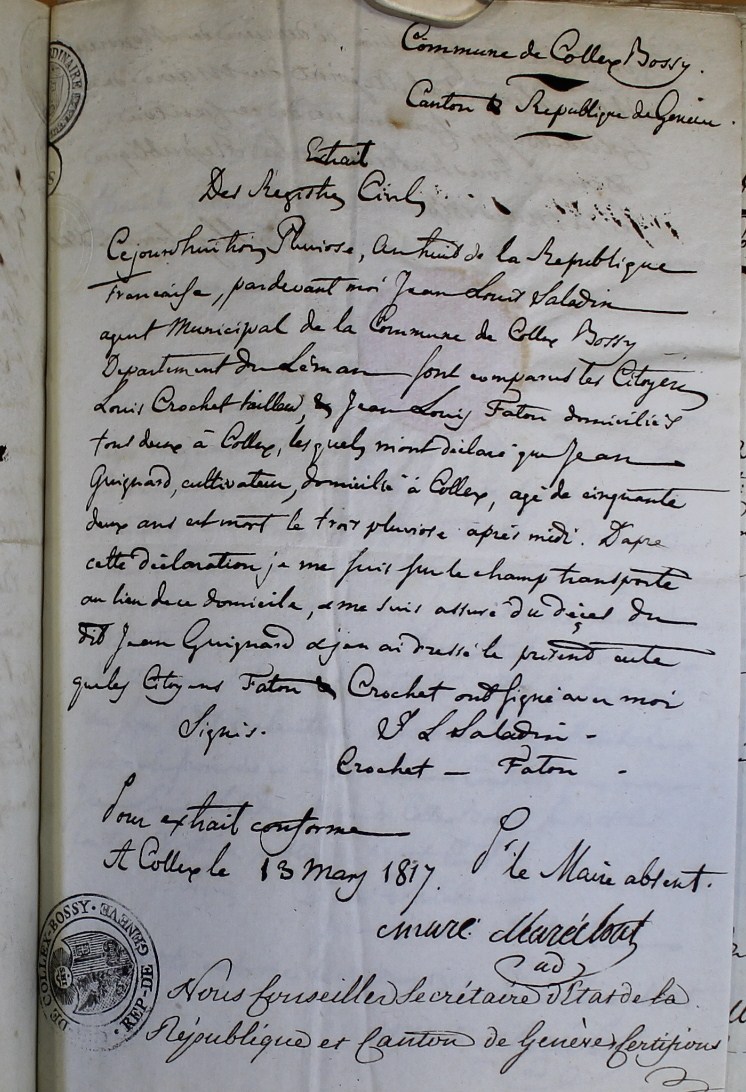 Commune de Collex Bossy.
Canton & Republique de Genève.
Extrait
Des Registres Civils
Cejourdhui trois Pluviose, an huit de la Republique
francaise, pardevant moi Jean Louis Saladin
agent Municipal de la Commune de Collex Bossy
Departement du Léman sont comparus les Citoyens
Louis Crochet tailleur, & Jean Louis Faton domiciliés
tous deux à Collex, lesquels m'ont déclaré que Jean
Guignard, cultivateur, domicilié à Collex, agé de cinquante
deux ans est mort le trois pluviose après midi. D'apre
cette déclaration je me suis sur le champ transporté
au lieu de ce domicile, & me suis assuré du décès du
dit Jean Guignard & j'en ai dressé le présent acte
que les Citoyens Faton & Crochet ont signé avec moi
Signés. J L Saladin -
Crochet - Faton -
Pour extrait conforme
A Collex le 13 Mars 1817. Pr le Maire absent.
Maréchal
ad
Nous Conseiller Secrétaire d'Etat de la
République et Canton de Genève Certifions
DE COLLEX-BOSSY · REP· DE GENEVE